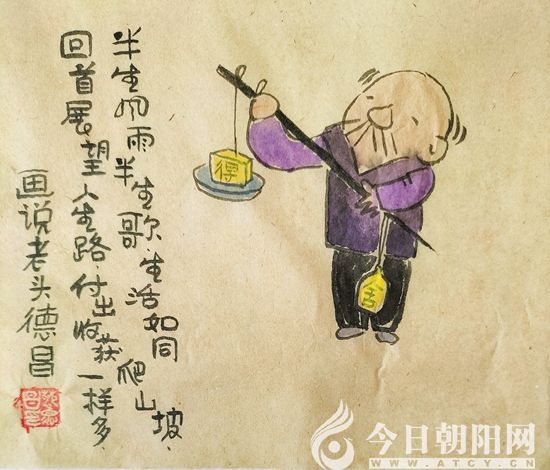 半生风雨半生歌.生活如同爬山坡.
回首展望人生路.付出收获一样多.
画说老头德昌
得
舍
今日朝阳网
WWW.ATCY.CN